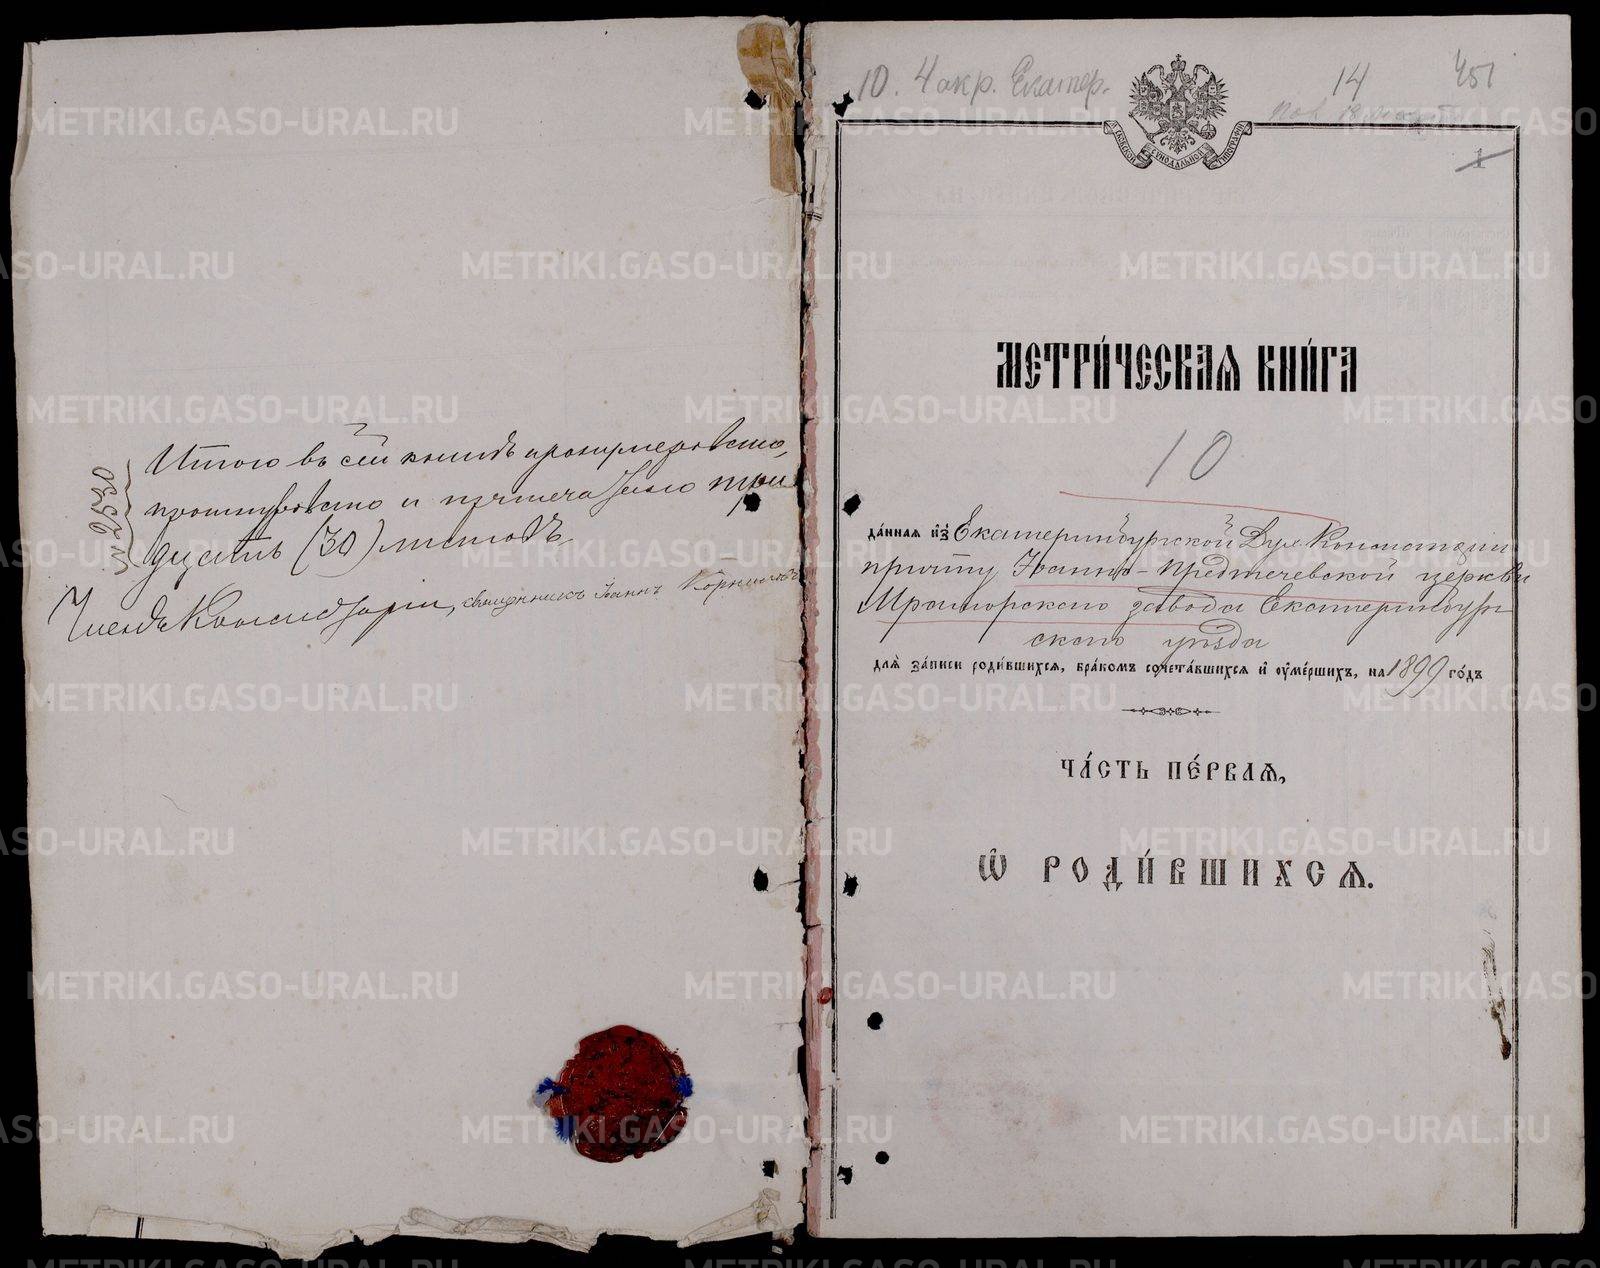 № 9530
Итого въ сей книгѣ пронумеровано,
прошнуровано и припечатано три
дцать (30) листовъ
Членъ Консисторіи, священникъ Іоаннъ Корниловъ
10. 4 окр. Екатер.
14
451
1
МОСКОВСКОЙ СѴНОДАЛЬНОЙ ТИПОГРАФІИ
МЕТРИ́ЧЕСКАѦ КНИ́ГА
10
да́ннаѧ и҆з̾ Екатеринбургской Дух. Консисторіи
причту Іоанно-Предтечевской церкви
Мраморскаго завода Екатеринбург
скаго уѣзда
длѧ̀ за́писи роди́вшихсѧ, бра́комъ сочета́вшихсѧ и҆ ᲂу҆ме́ршихъ, на 1899 го́дъ
ЧА́СТЬ ПЕ́РВАѦ,
Ѽ РОДИ́ВШИХСѦ.
METRIKI.GASO-URAL.RU